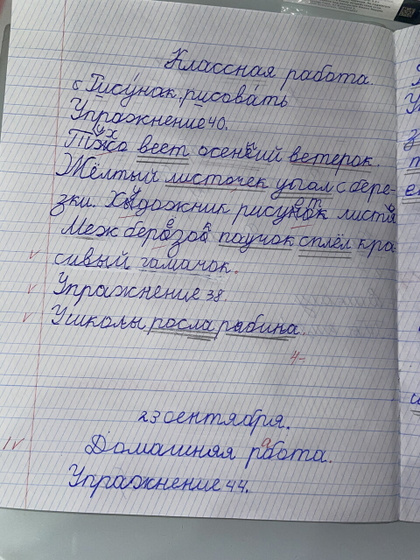 Классная работа.
Рисунок, рисовать
Упражнение 40.
Тихо веет осенний ветерок.
Жёлтый листочек упал с берё-
зки. Художник рисует листья
Меж берёзой паучок сплёл кра-
сивый гамачок.
Упражнение 38.
У школы росла рябина.
4-
23 сентября.
Домашняя работа.
Упражнение 44.